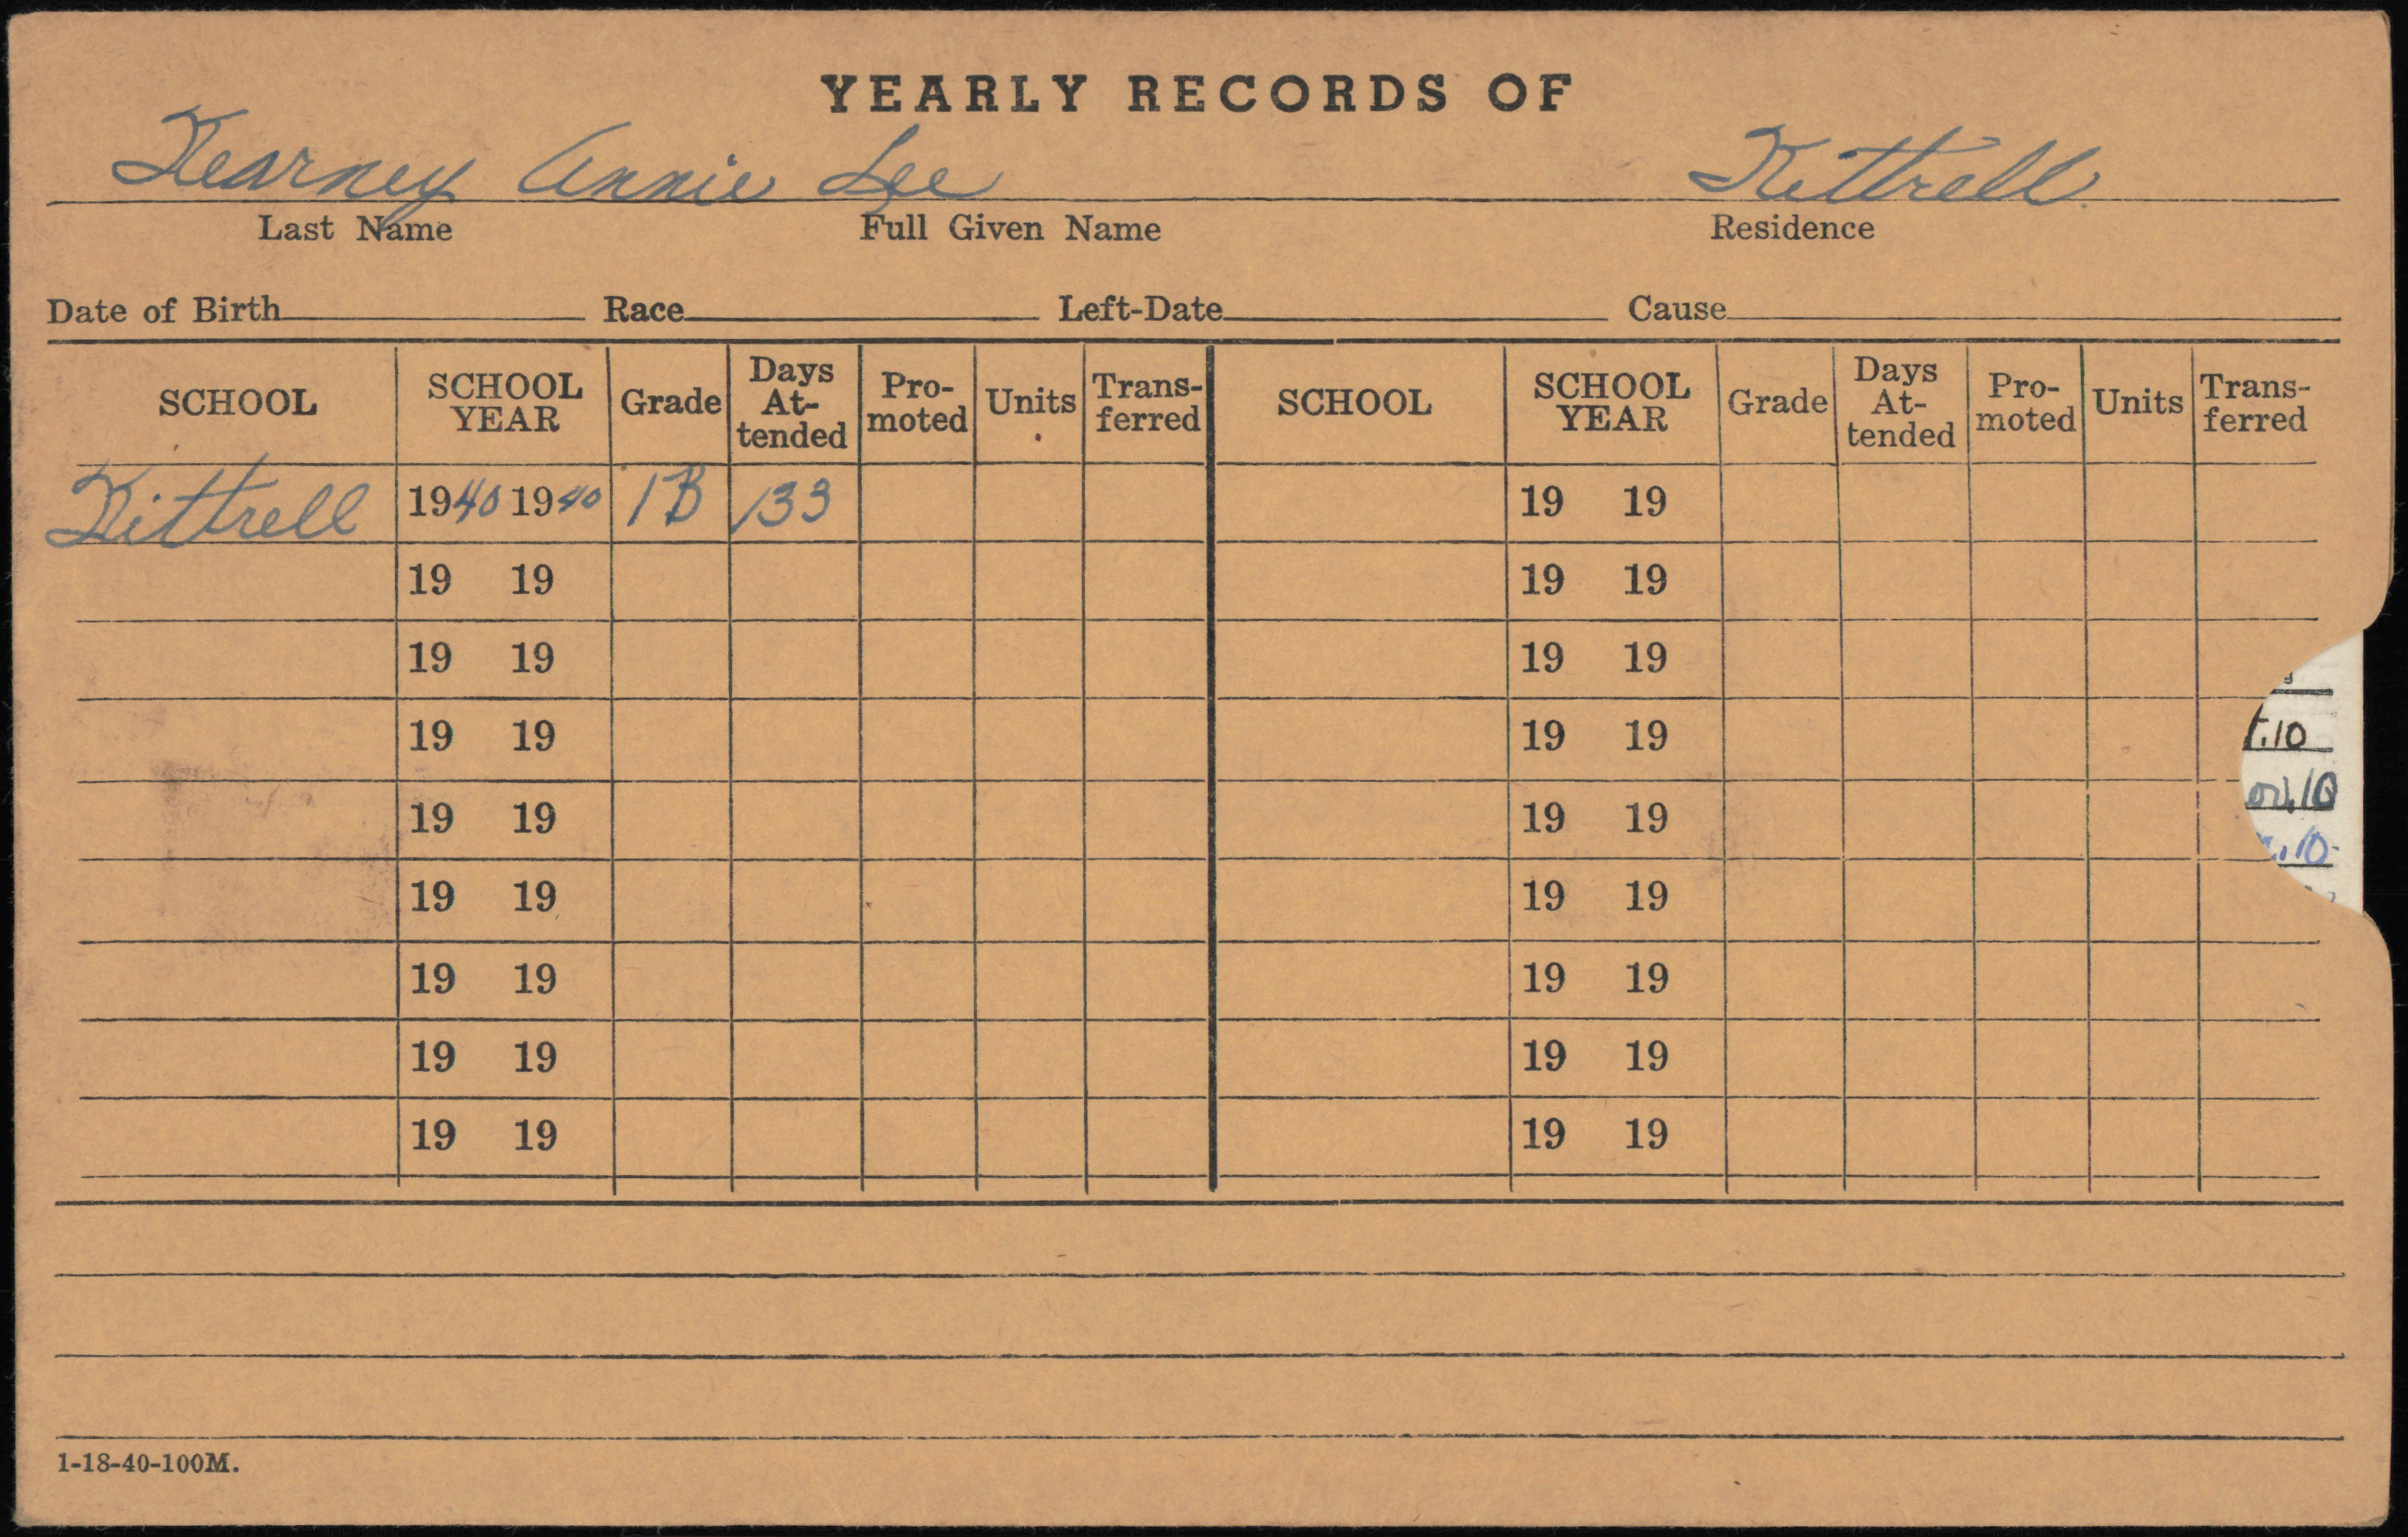 YEARLY RECORDS OF
Kearney Annie Lee Kittrell
Last Name Full Given Name Residence
Date of Birth Race Left-Date Cause
SCHOOL SCHOOL YEAR Grade Days At- tended Pro- moted Units Trans- ferred SCHOOL SCHOOL YEAR Grade Days At- tended Pro- moted Units Trans- ferred
Kittrell 1940 1940 1B 133 19 19
19 19 19 19
19 19 19 19
19 19 19 19
.10
19 19 19 19
ov.10
.10
19 19 19 19
19 19 19 19
19 19 19 19
19 19 19 19
1-18-40-100M.